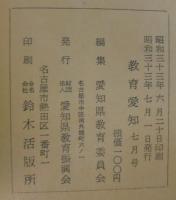 昭和三十三年六月二十日印刷
昭和三十三年七月一日発行
教育愛知 七月号
頒価一〇〇円
編集 愛知県教育委員会
名古屋市中区南外堀町六ノ一
発行 財団法人 愛知県教育振興会
名古屋市熱田区一番町一
印刷 合名会社 鈴木活版所